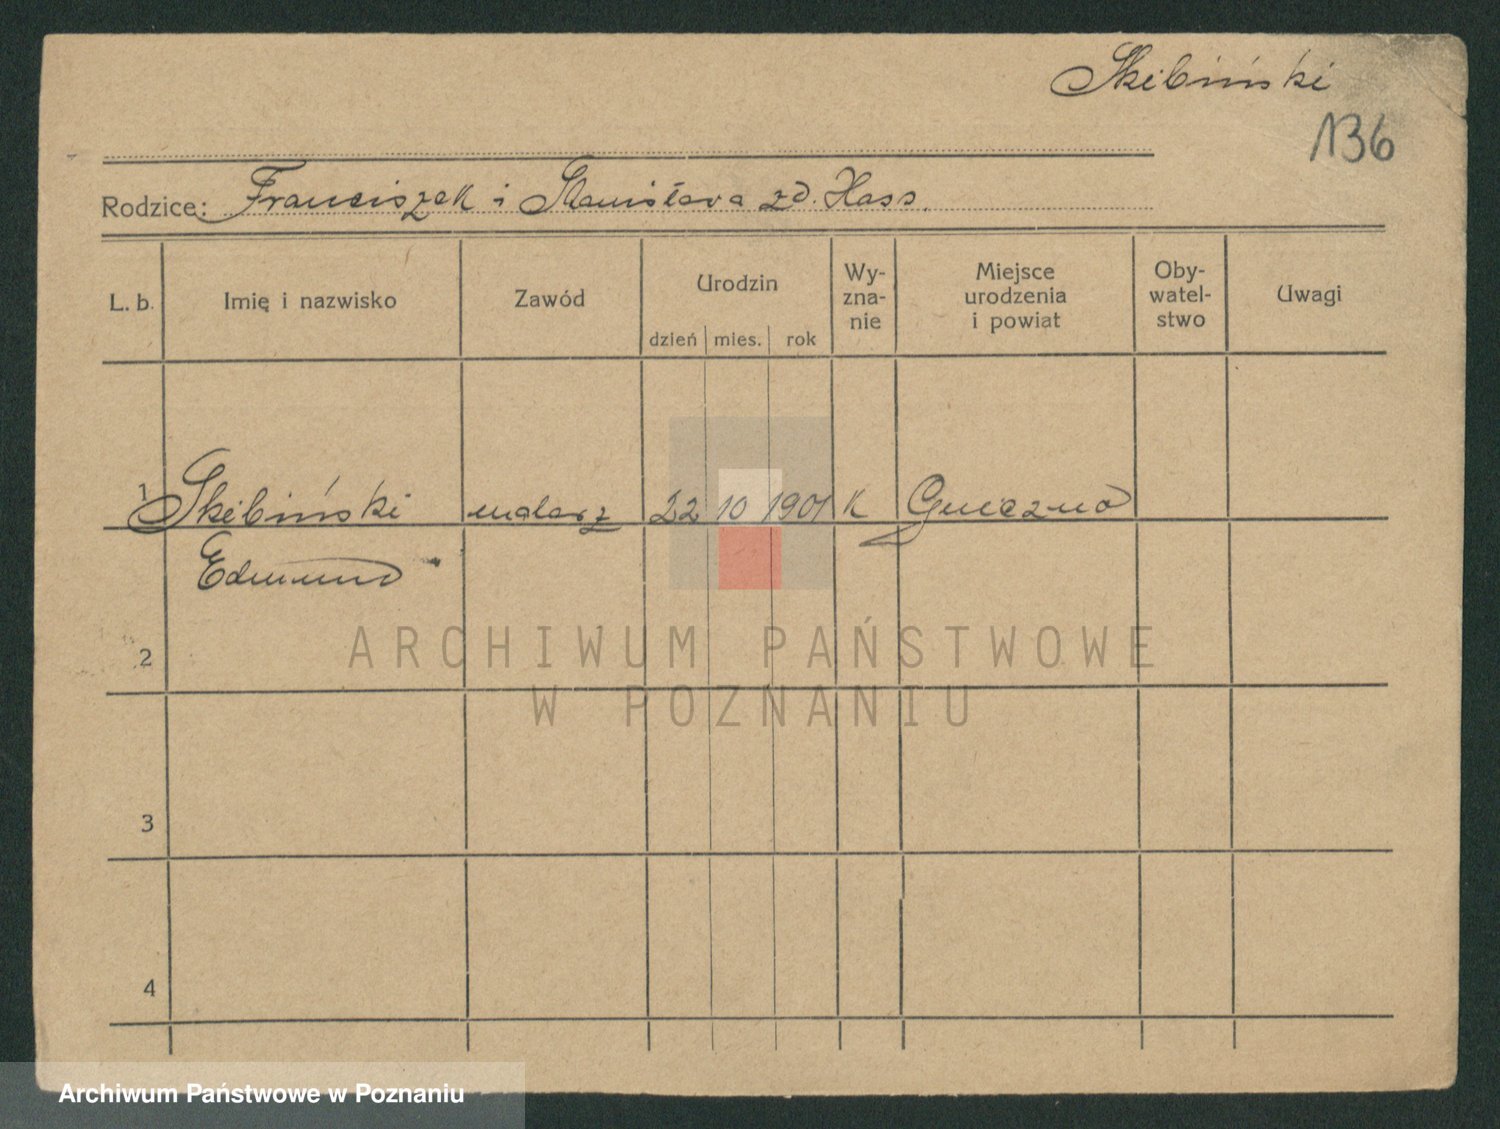 Skibiński
136
Rodzice: Franciszek i Stanisława zd. Hass.
L. b. Imię i nazwisko Zawód Urodzin Wy- Miejsce Oby- Uwagi
zna- urodzenia watel-
nie i powiat stwo
dzień mies. rok
1 Skibiński malarz 22 10 1901 K Gniezno
Edmund
2
ARCHIWUM PAŃSTWOWE
W POZNANIU
3
4
Archiwum Państwowe w Poznaniu